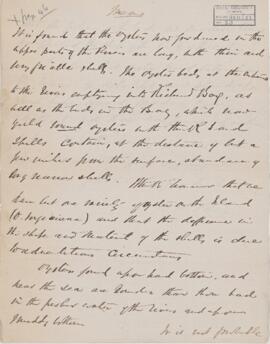 It is found that the oysters now produced in the
upper parts of the rivers are long, with thin and
very friable shells. The oyster beds, at the
to the rivers emptying into Richmond Bay, as
well as the beds in the Bay, which now
yield round oysters with thick hard
shells contain, at the distance of but a
few inches from the surface, abundance of
long narrow shells.
that we
have but one variety of oyster on the Island
(O. Virginiana) and that the difference in
the shape and material of the shells is due
to conditions
Oysters found upon hard bottom, and
near the sea are rounder than those found
in the fresher water of the rivers and upon
muddy bottom.
It is not probable